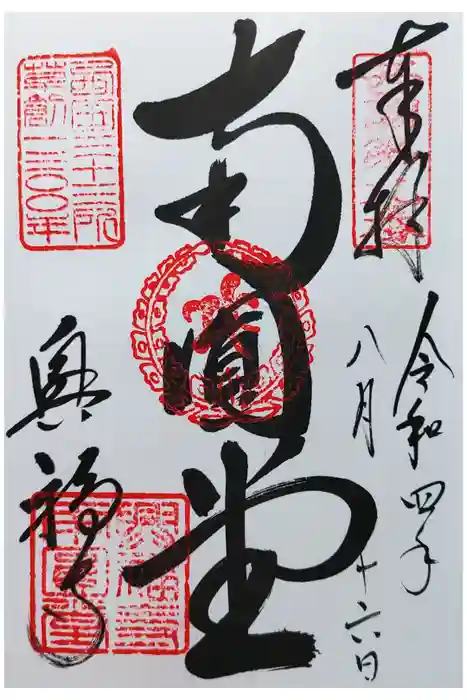 奉拝
令和四年
八月十六日
南圓堂
西国三十三所
草創一三〇〇年
興福寺
興福寺
南圓堂